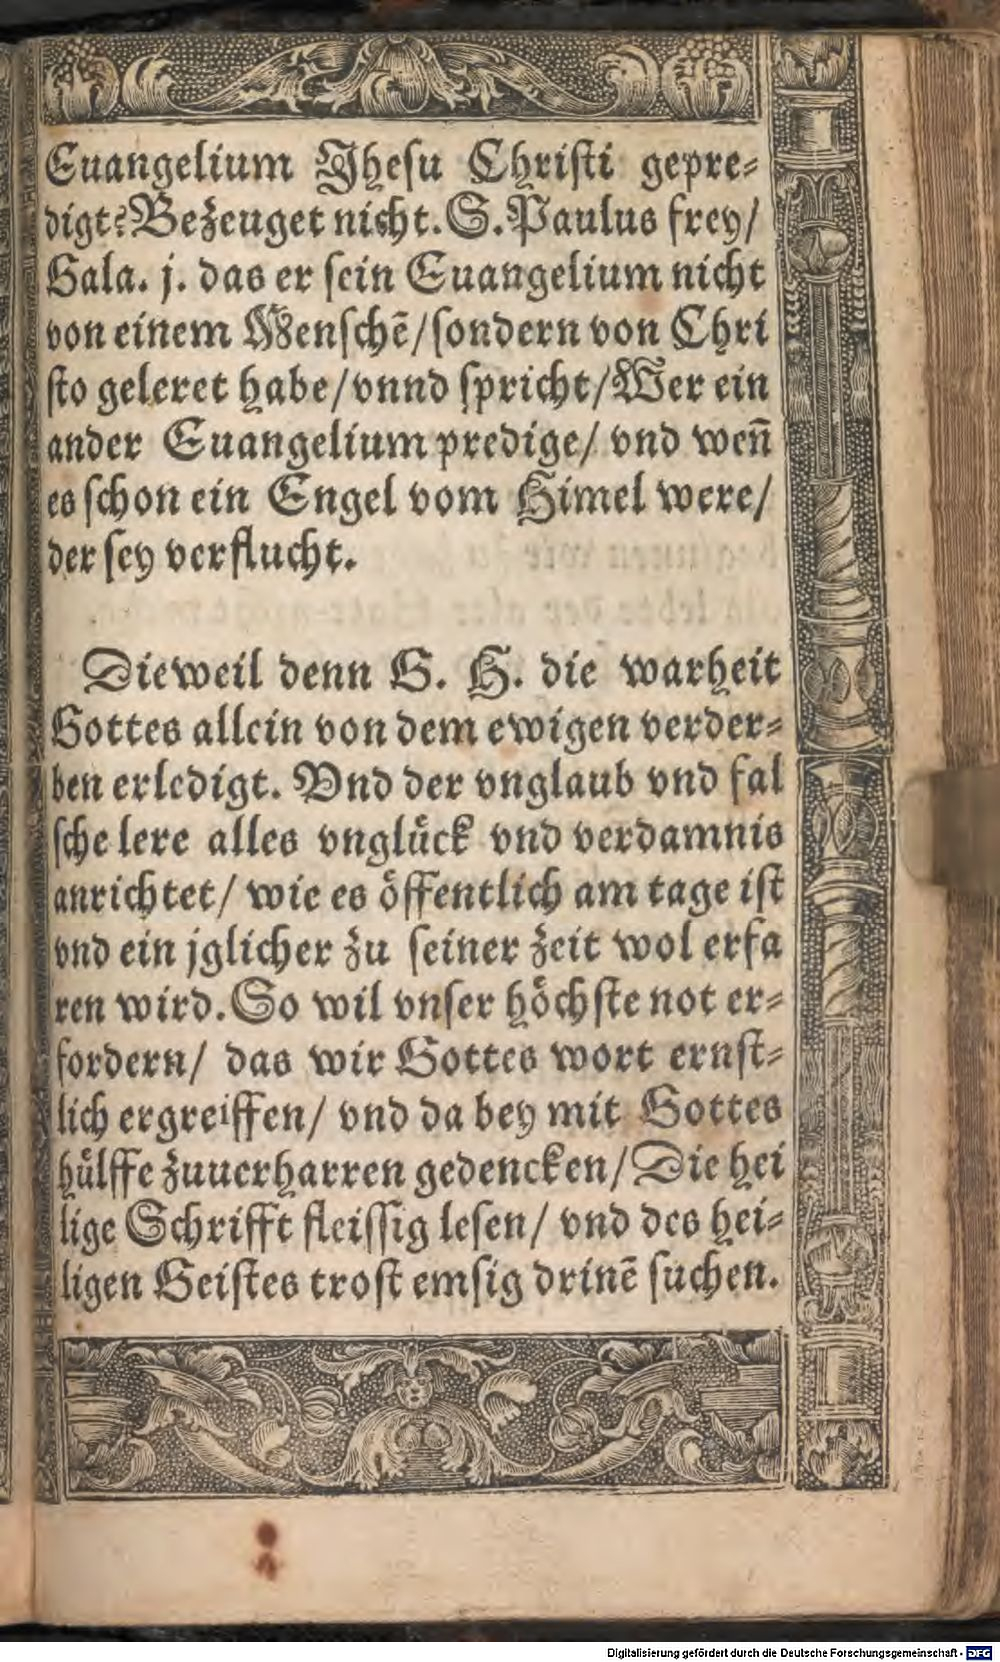 Euangelium Jhesu Christi gepre⸗
digt? Bezeuget nicht. S. Paulus frey/
Gala. j. das er sein Euangelium nicht
von einem Menschē/ sondern von Chri
sto geleret habe/ vnnd spricht/ Wer ein
ander Euangelium predige/ vnd wen̄
es schon ein Engel vom Himel were/
der sey verflucht.
Dieweil denn G. H. die warheit
Gottes allein von dem ewigen verder⸗
ben erledigt. Vnd der vnglaub vnd fal
sche lere alles vnglůck vnd verdamnis
anrichtet/ wie es ôffentlich am tage ist
vnd ein jglicher zu seiner zeit wol erfa
ren wird. So wil vnser hôchste not er⸗
fordern/ das wir Gottes wort ernst⸗
lich ergreiffen/ vnd da bey mit Gottes
hůlffe zuuerharren gedencken/ Die hei
lige Schrifft fleissig lesen/ vnd des hei⸗
ligen Geistes trost emsig drinē suchen.
Digitalisierung gefördert durch die Deutsche Forschungsgemeinschaft - DFG